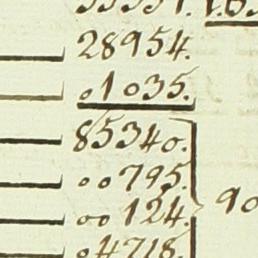 28954.
01035.
85340.
00795.
00124.
04718.
90